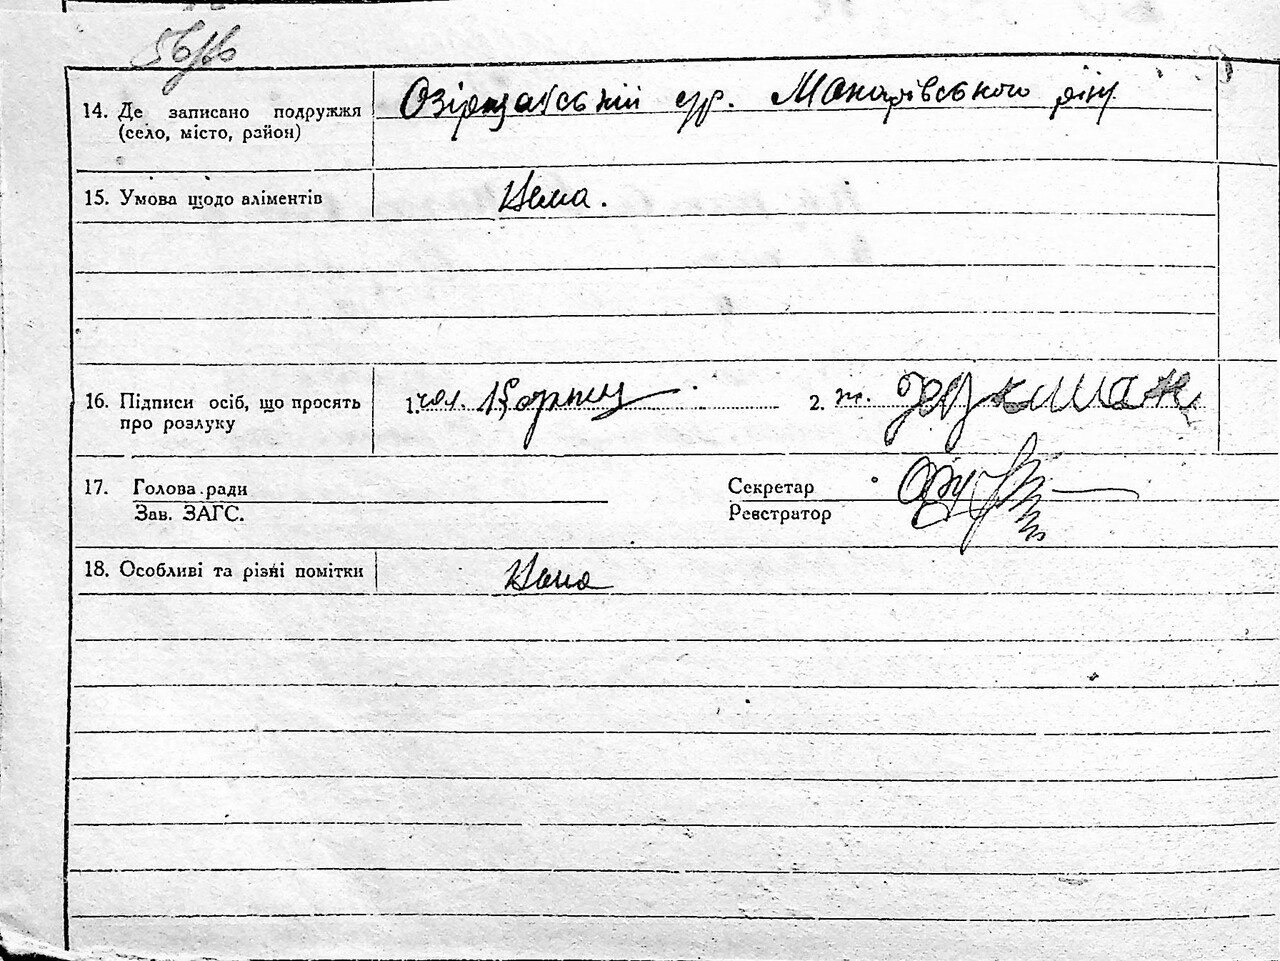 14. Де записано подружжя
(село, місто, район)
Озірщанській с/р. Макарівського р-ну
15. Умова щодо аліментів
Нема.
16. Підписи осіб, що просять
про розлуку
1. чол.
2. ж.
17. Голова ради
Зав. ЗАГС.
Секретар
Реєстратор
18. Особливі та різні помітки
Нема